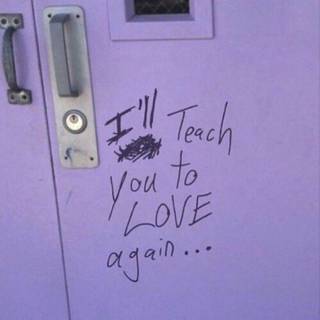 I'll Teach
you to
LOVE
again...